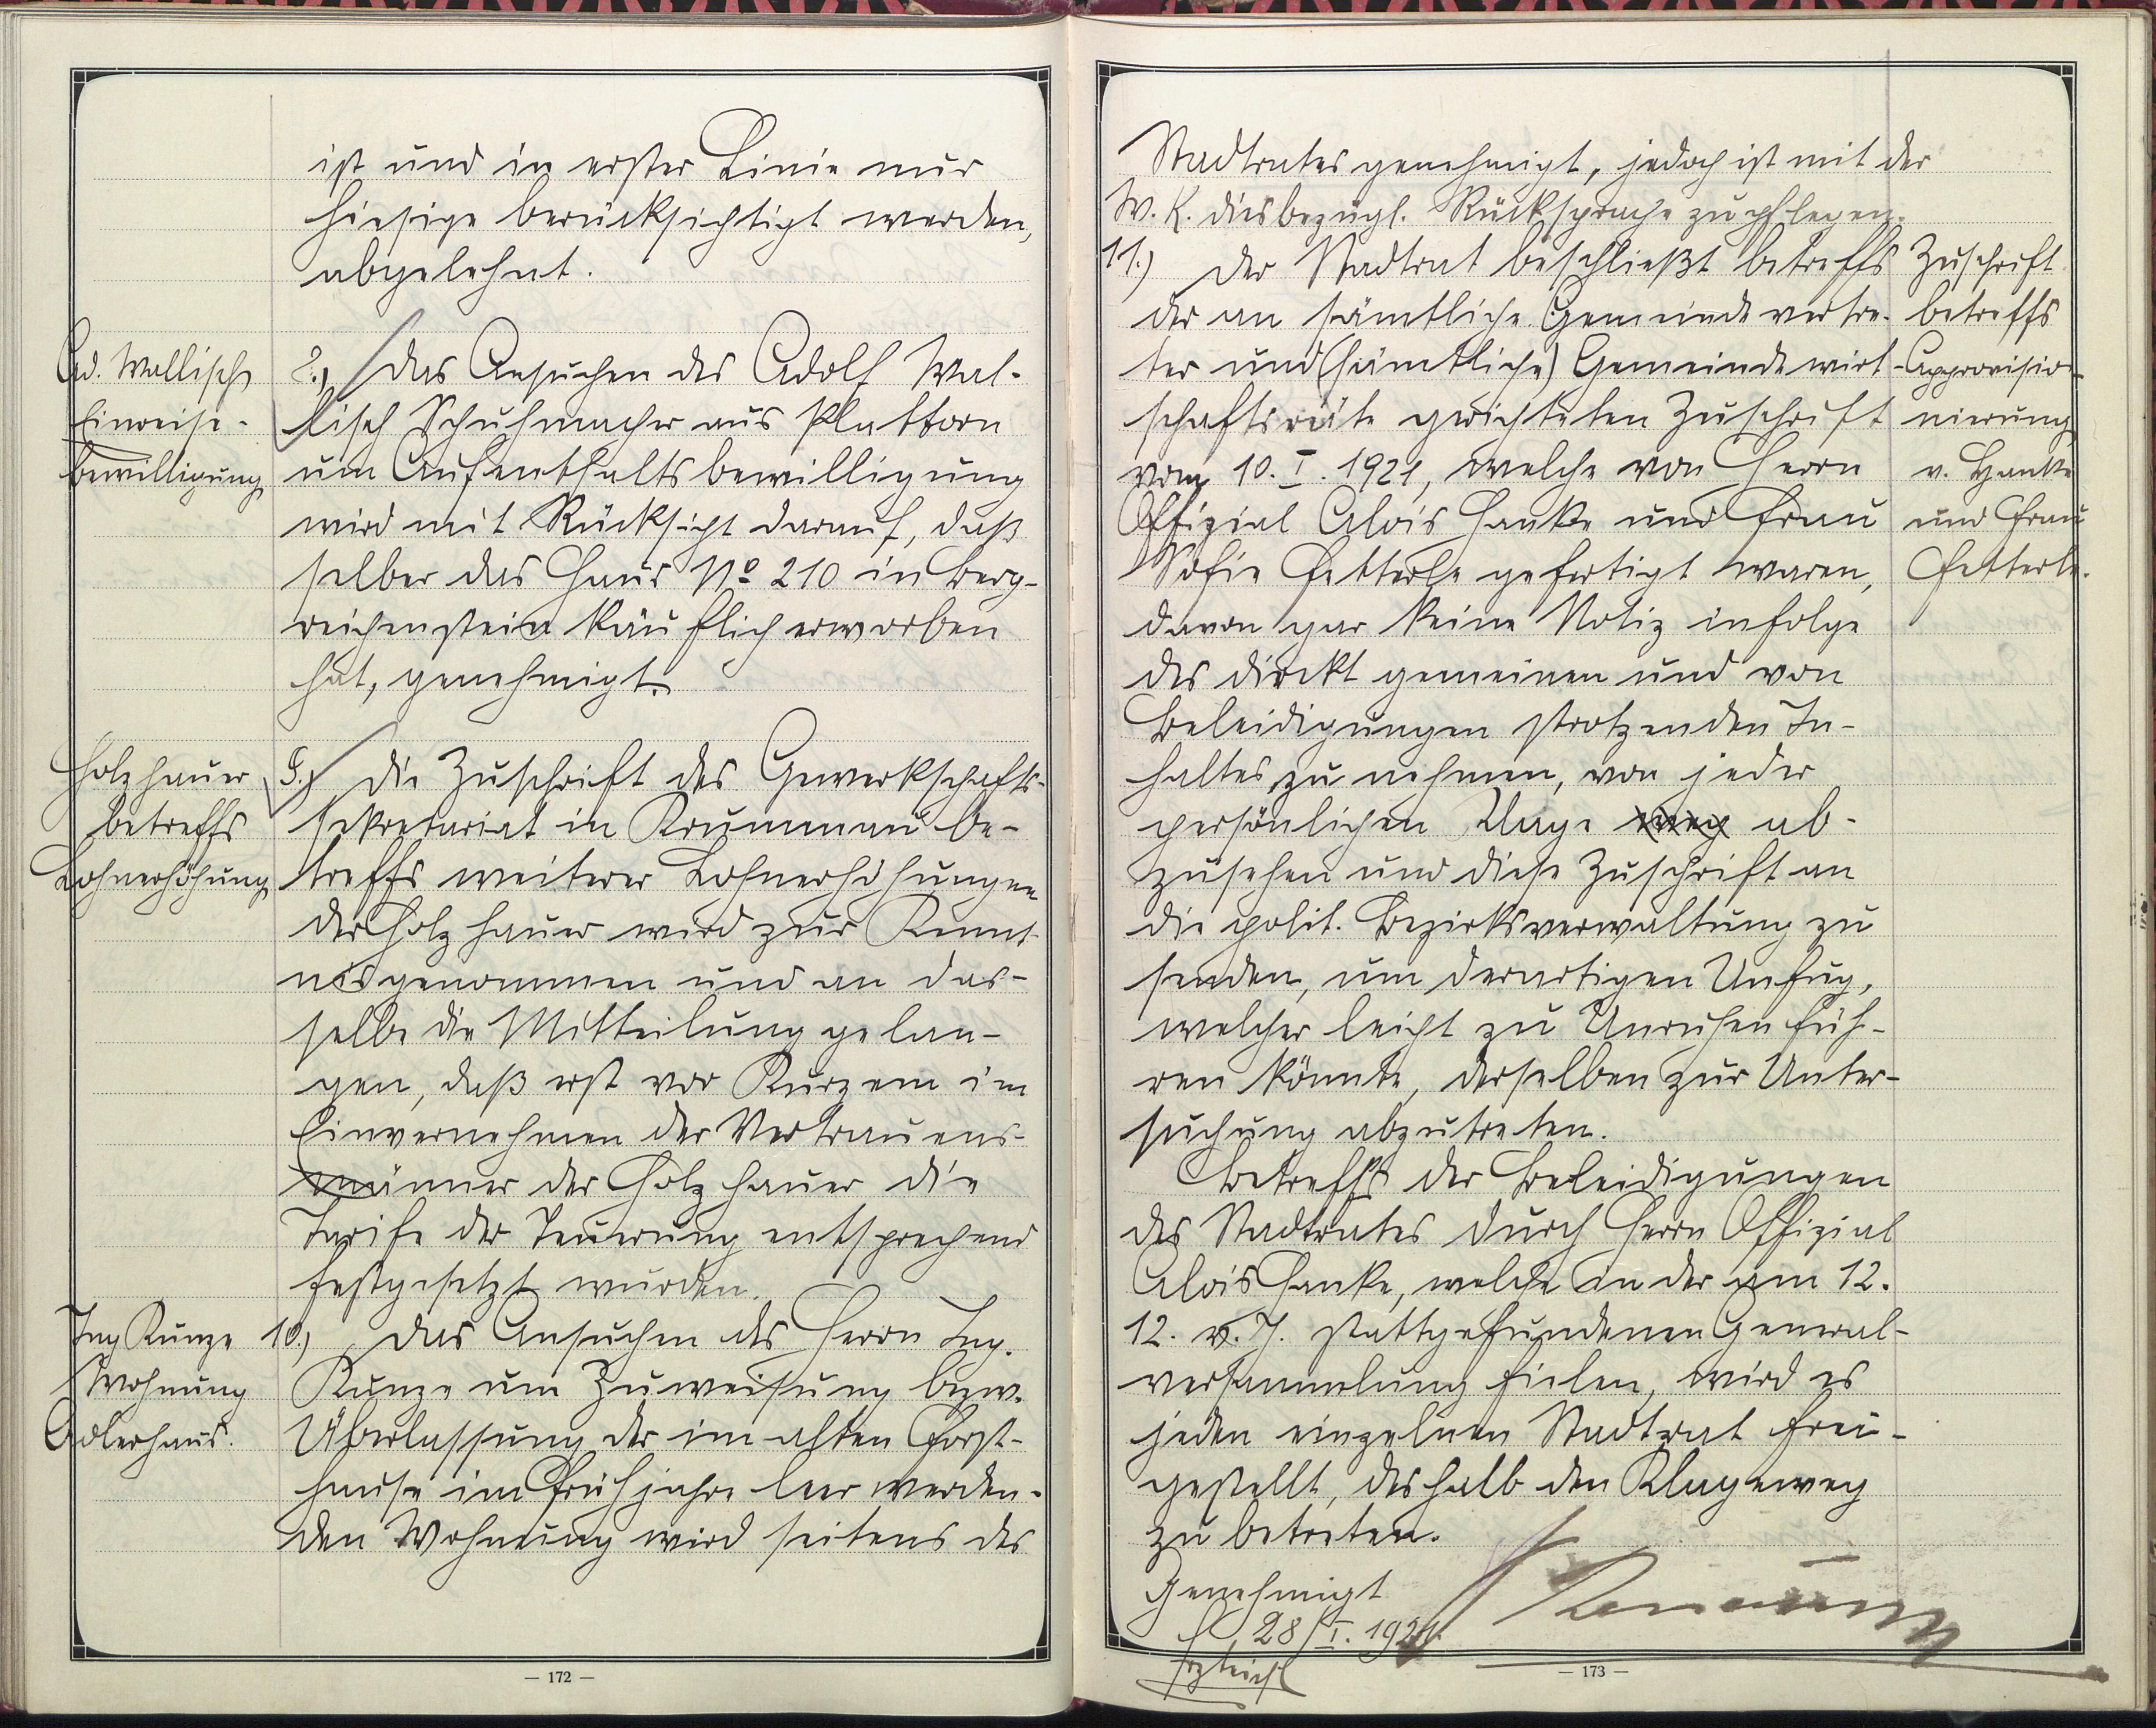 ist und in erster Linie nur
hiesige berücksichtigt werden,
abgelehnt.
Ad. Wallisch
Einreise-
bewilligung
8.) Das Ansuchen des Adolf Wal-
lisch Schuhmacher aus Plattorn
um Aufenthaltsbewilligung
wird mit Rücksicht darauf, daß
selber das Haus No 210 in Berg-
reichenstein käuflich erworben
hat, genehmigt.
Holzhauer
betreffs
Lohnerhöhung
9.) Die Zuschrift des Gewerkschafts-
sekretariat in Krummau be-
treffs weiterer Lohnerhöhungen
der Holzhauer wird zur Kennt-
nis genommen und an das-
selbe die Mitteilung gelan-
gen, daß erst vor Kurzem im
Einvernehmen der Vertrauens-
männer der Holzhauer die
Tarife der Teuerung entsprechend
festgesetzt wurden.
Ing Kunze
Wohnung
Adlerhaus.
10.) Das Ansuchen des Herrn Ing.
Kunze um Zuweisung bzw.
Überlassung der im alten Forst-
hause im Frühjahre leer werden-
den Wohnung wird seitens des
— 172 —
Stadtrates genehmigt, jedoch ist mit der
W. K. diesbezügl. Rücksprache zu pflegen.
11.) Der Stadtrat beschließt betreffs
der an sämtliche Gemeindevertre-
ter und (sämtliche) Gemeindewirt-
schaftsräte gerichteten Zuschrift
vom 10. I. 1921, welche von Herrn
Offizial Alois Hanke und Frau
Sofie Fetterle gefertigt waren,
davon gar keine Notiz infolge
des direkt gemeinen und von
Beleidigungen strotzenden In-
haltes zu nehmen, von jeder
persönlichen Klage weg ab-
zusehen und diese Zuschrift an
die polit. Bezirksverwaltung zu
senden, um derartigen Unfug,
welcher leicht zu Unruhen füh-
ren könnte, derselben zur Unter-
suchung abzutreten.
Betreffs der Beleidigungen
des Stadtrates durch Herrn Offizial
Alois Hanke, welche in der am 12.
12. v. J. stattgefundenen General-
versammlung fielen, wird es
jeden einzelnen Stadtrat frei-
gestellt, deshalb den Klageweg
zu betreten.
Zuschrift
betreffs
Approvisio-
nierung
v. Hanke
und Frau
Fetterle.
Genehmigt
28/I. 1921.
— 173 —